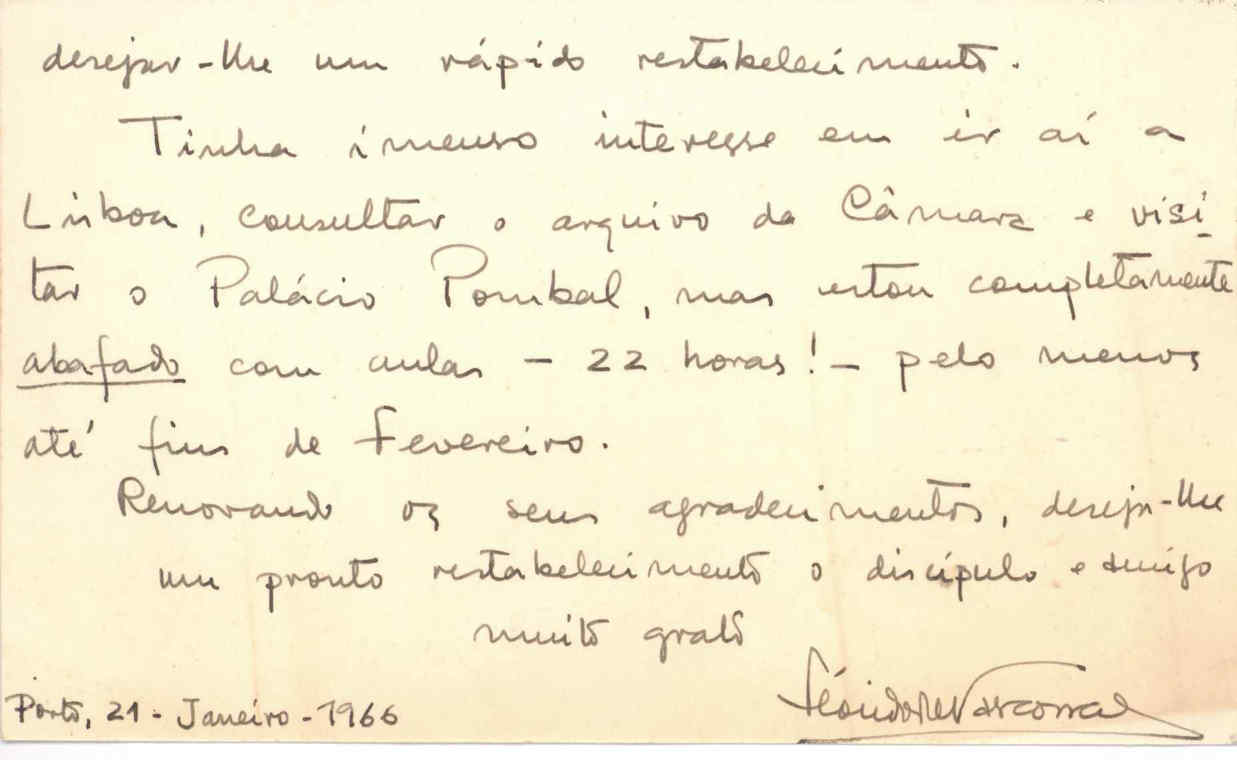 desejar-lhe um rápido restabelecimento.
Tinha imenso interesse em ir aí a
Lisboa, consultar o arquivo da Câmara e visi-
tar o Palácio Pombal, mas estou completamente
abafado com aulas - 22 horas! - pelo menos
até fins de Fevereiro.
Renovando os seus agradecimentos, deseja-lhe
um pronto restabelecimento o discípulo e amigo
muito grato
Porto, 21 - Janeiro - 1966